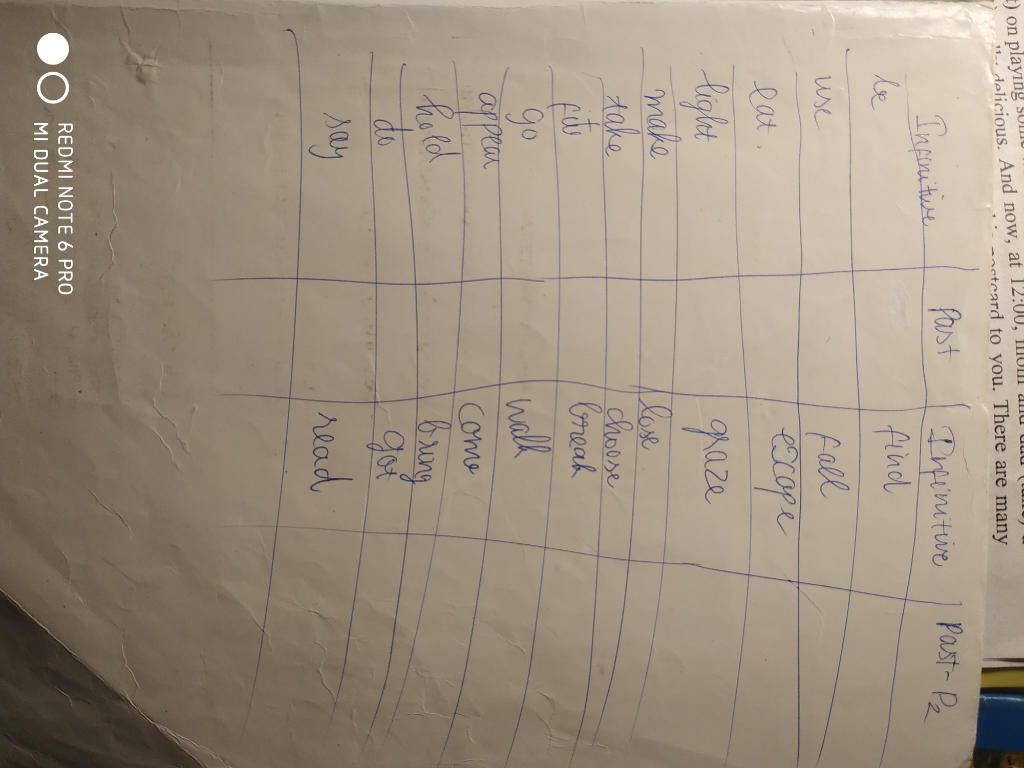 t) on playing some
delicious. And now, at 12:00, mom and dad
postcard to you. There are many
Infinitive Past Infinitive Past - P2
be find
use fall
eat. escape
light graze
make lose
take choose
fit break
go walk
appear come
hold bring
do got
say read
REDMI NOTE 6 PRO
MI DUAL CAMERA